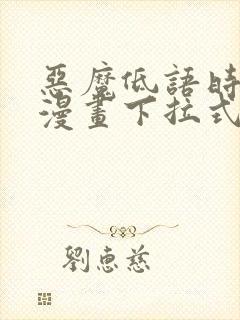 惡魔低語時
漫畫下拉式
劉惠慈